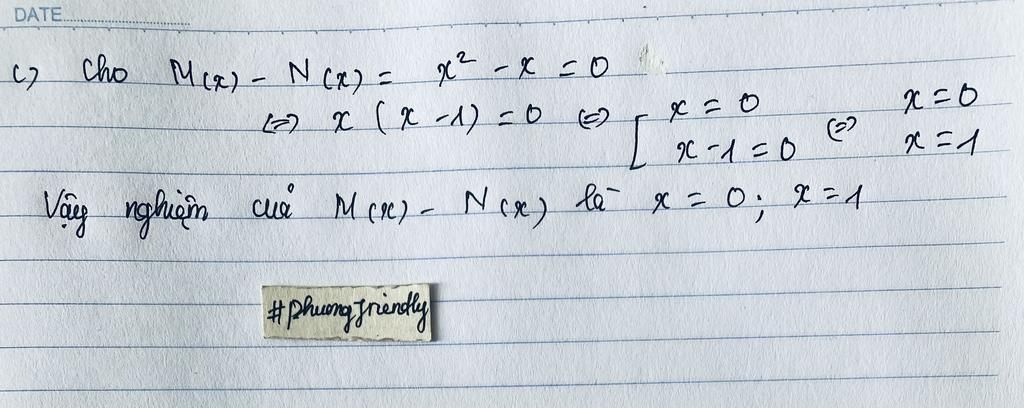 DATE
c) Cho M(x) - N(x) = x² - x = 0
⇔ x (x - 1) = 0 ⇔ [ x = 0 ⇔ x = 0
x - 1 = 0 x = 1
Vậy nghiệm của M(x) - N(x) là x = 0; x = 1
#phuongfriendly